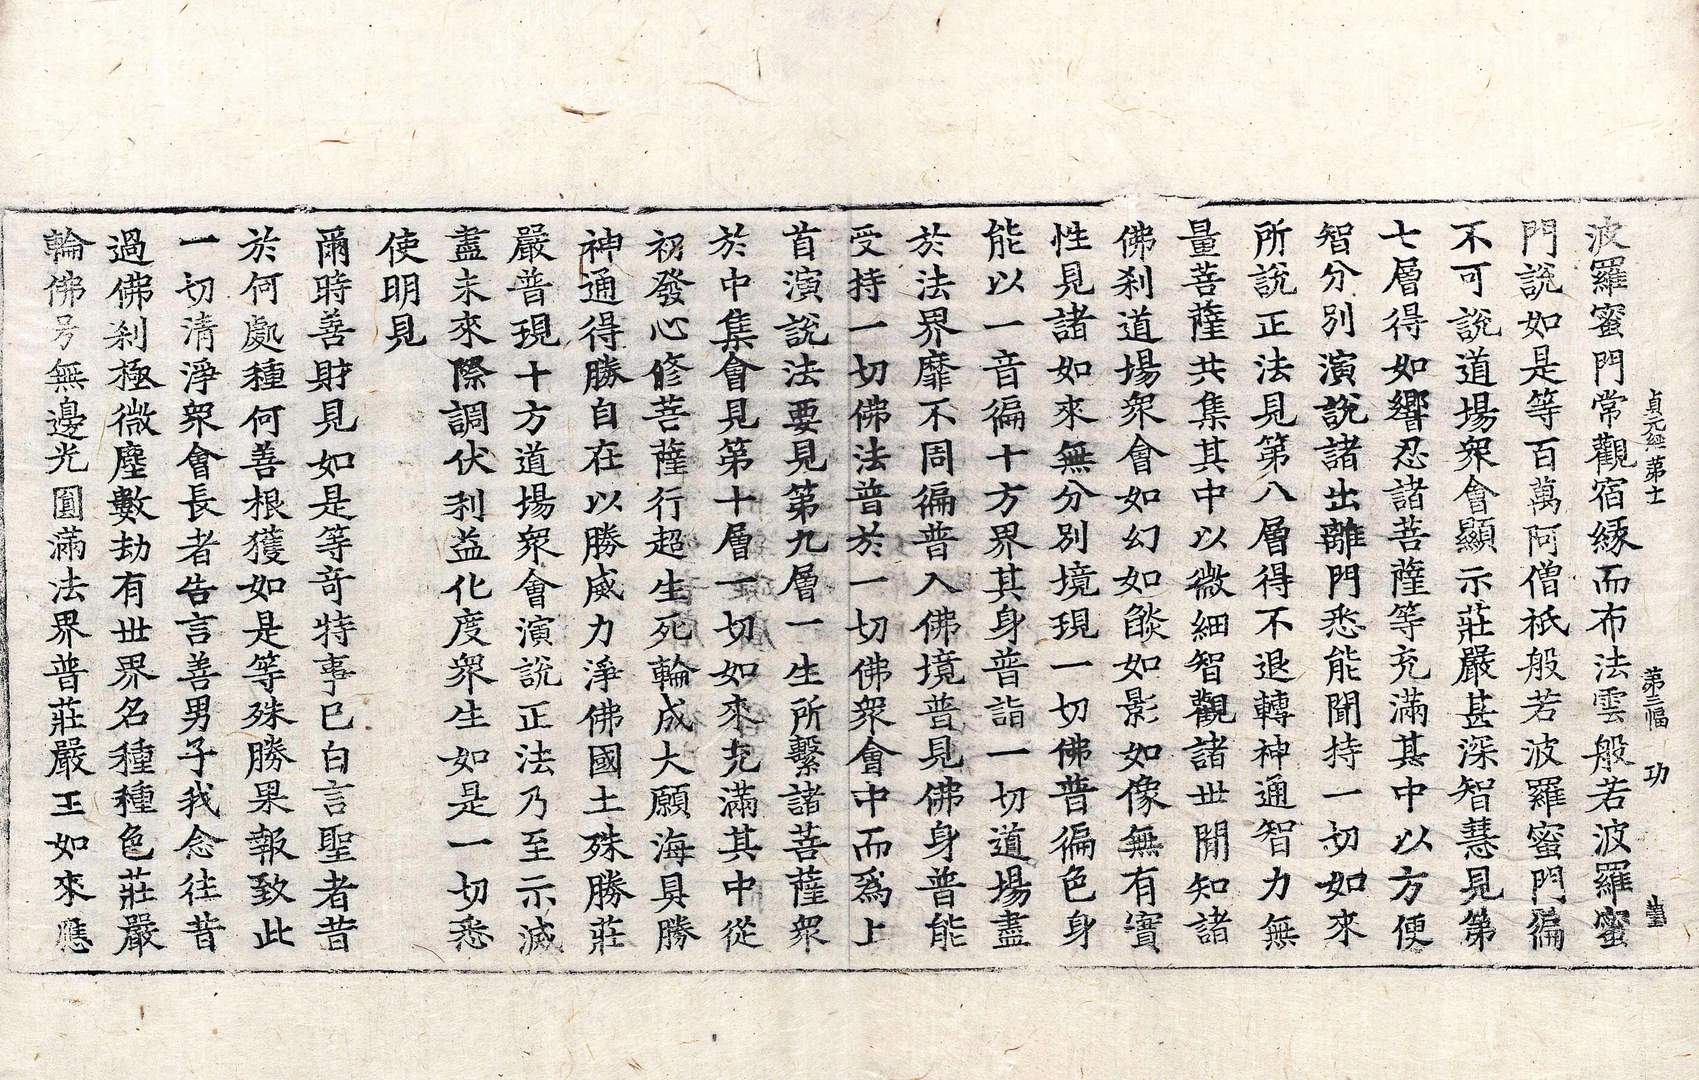 貞元經第十一 第三幅 功
波羅蜜門常觀宿緣而布法雲般若波羅蜜
門說如是等百萬阿僧祇般若波羅蜜門徧
不可說道場衆會顯示莊嚴甚深智慧見第
七層得如響忍諸菩薩等充滿其中以方便
智分別演說諸出離門悉能聞持一切如來
所說正法見第八層得不退轉神通智力無
量菩薩共集其中以微細智觀諸世間知諸
佛刹道場衆會如幻如燄如影如像無有實
性見諸如來無分別境現一切佛普徧色身
能以一音徧十方界其身普詣一切道場盡
於法界靡不周徧普入佛境普見佛身普能
受持一切佛法普於一切佛衆會中而爲上
首演說法要見第九層一生所繫諸菩薩衆
於中集會見第十層一切如來充滿其中從
初發心修菩薩行超生死輪成大願海具勝
神通得勝自在以勝威力淨佛國土殊勝莊
嚴普現十方道場衆會演說正法乃至示滅
盡未來際調伏利益化度衆生如是一切悉
使明見
爾時善財見如是等奇特事已白言聖者昔
於何處種何善根獲如是等殊勝果報致此
一切清淨衆會長者告言善男子我念往昔
過佛刹極微塵數劫有世界名種種色莊嚴
輪佛号無邊光圓滿法界普莊嚴王如來應